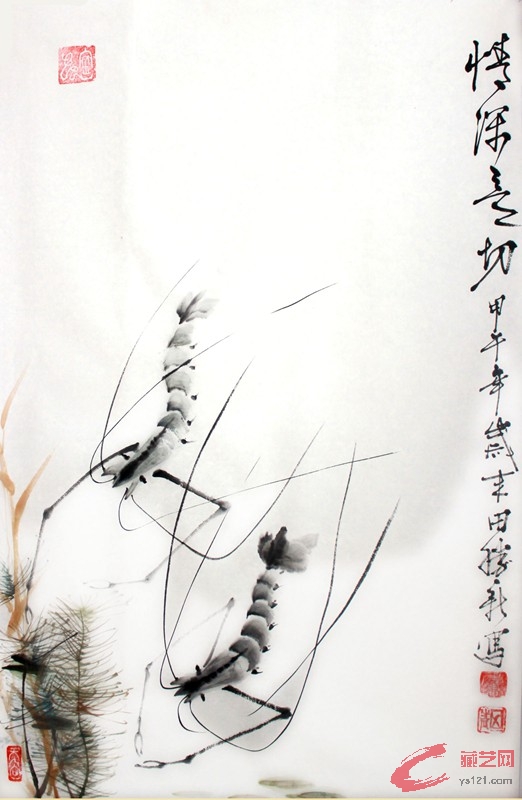 情深意切
甲午年歲末田勝新寫
藏艺网
ys121.com